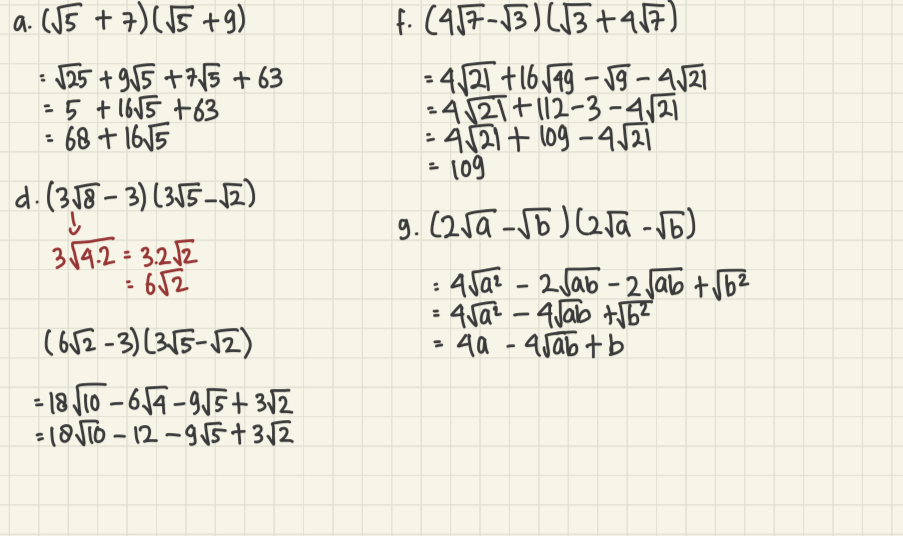 a. (√5 + 7)(√5 + 9)
= √25 + 9√5 + 7√5 + 63
= 5 + 16√5 + 63
= 68 + 16√5
d. (3√8 - 3)(3√5 - √2)
3√4.2 = 3.2√2
= 6√2
(6√2 - 3)(3√5 - √2)
= 18√10 - 6√4 - 9√5 + 3√2
= 18√10 - 12 - 9√5 + 3√2
f. (4√7 - √3)(√3 + 4√7)
= 4√21 + 16√49 - √9 - 4√21
= 4√21 + 112 - 3 - 4√21
= 4√21 + 109 - 4√21
= 109
g. (2√a - √b)(2√a - √b)
= 4√a² - 2√ab - 2√ab + √b²
= 4√a² - 4√ab + √b²
= 4a - 4√ab + b